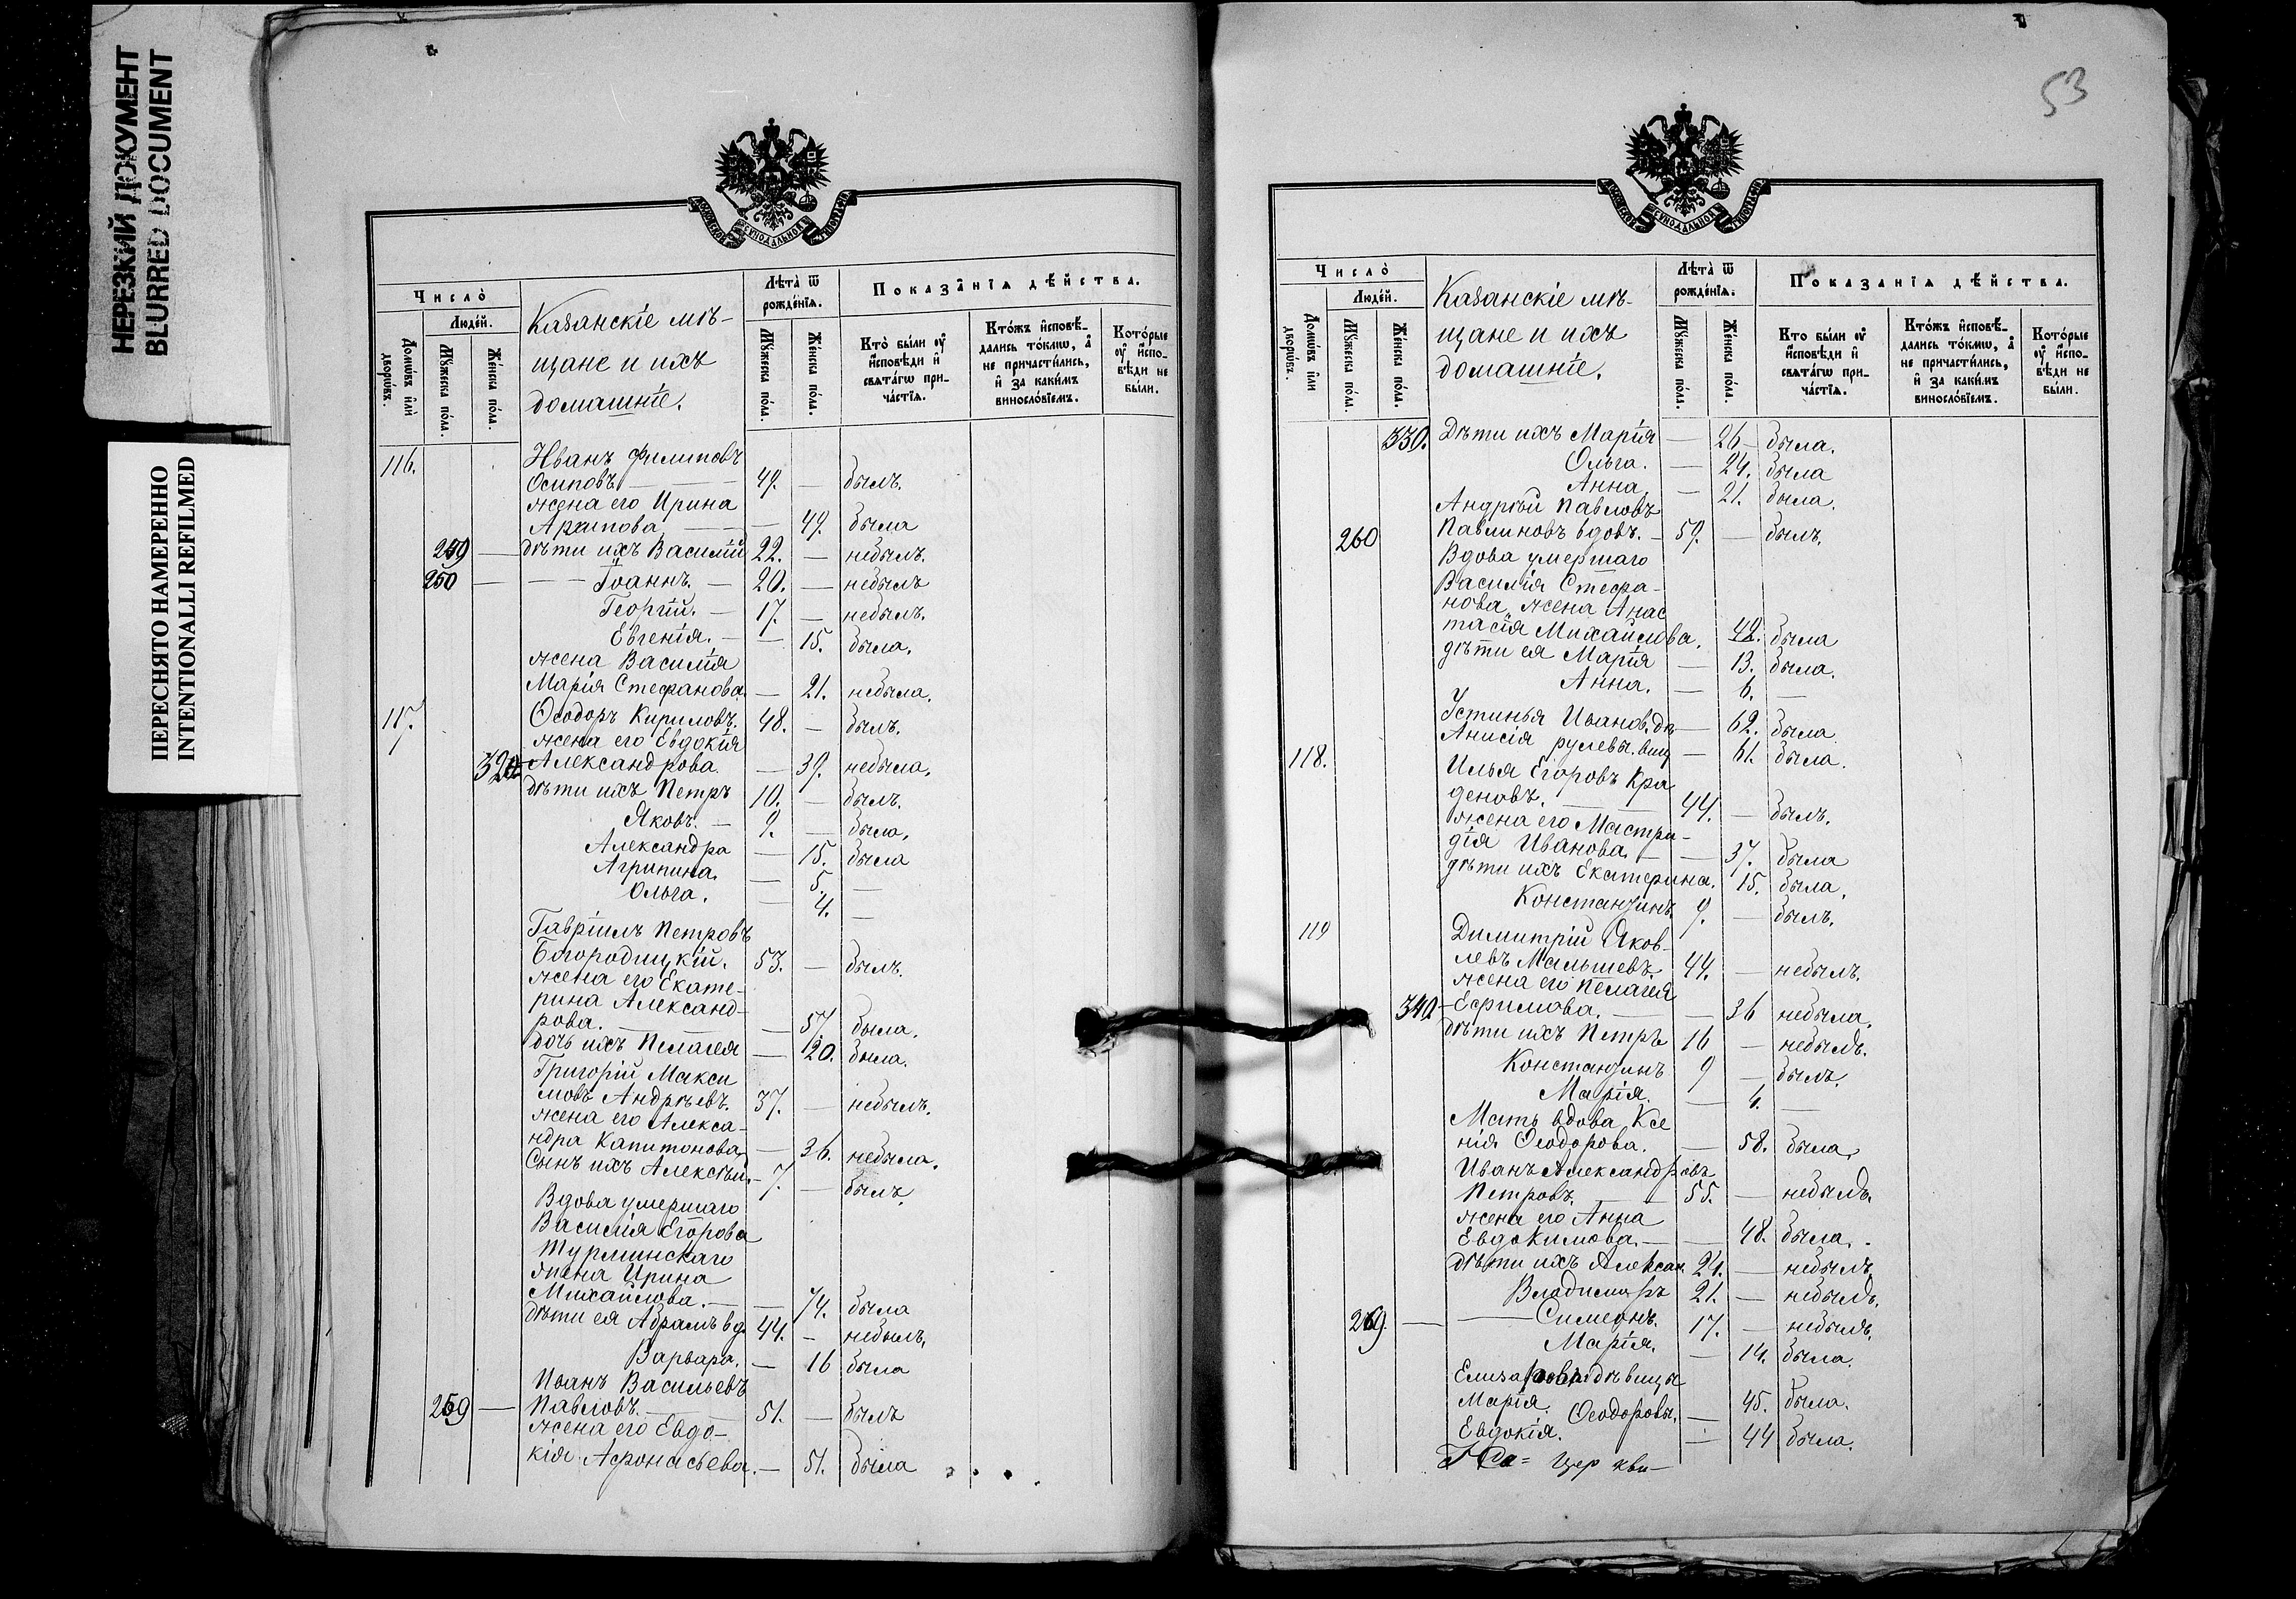 НЕРЕЗКИЙ ДОКУМЕНТ
BLURRED DOCUMENT
ПЕРЕСНЯТО НАМЕРЕННО
INTENTIONALLI REFILMED
Число̀
Людей.
Домѡвъ и҆лѝ дворѡвъ.
Мꙋжеска пола.
Женска пола.
Казанскіе мѣ-
щане и ихъ
домашніе.
Лѣта̀ ѿ рожденїѧ.
Мꙋжеска пола.
Женска пола.
Показанїѧ дѣйства.
Кто̀ были оу҆ и҆сповѣди и҆ свѧтагѡ причастїѧ.
Ктожъ и҆сповѣдались токмѡ, а҆ не причастились, и҆ за какимъ винословїемъ.
Которые оу҆ и҆сповѣди не были.
116. Иванъ Филиповъ
Осиповъ — 49. — былъ.
жена его Ирина
Архипова — — 49. была
249 — дѣти ихъ Василій 22. — небылъ.
250 — — Іоаннъ. — 20. — небылъ
Георгій. — 17. — небылъ.
Евгенія. — — 15. была.
жена Василія
Марія Стефанова. — 21. небыла.
117. Ѳеодоръ Кириловъ. 48. — былъ.
жена его Евдокія
320 Александрова. — 39. небыла.
дѣти ихъ Петръ 10. — былъ.
Яковъ. — 9. — было.
Александра — 15. была
Агрипина. — 5. —
Ольга. — 4. —
Гавріилъ Петровъ
Богородицкій. 53. — былъ.
жена его Екате-
рина Александ-
рова. — — 57. была.
дочь ихъ Пелагея — 20. была.
Григорій Макси
мовъ Андрѣевъ. 37. — небылъ.
жена его Алекса-
ндра Капитонова, — 36. небыла.
Сынъ ихъ Алексѣй. — 7. — былъ
Вдова умершаго
Василія Егорова
Турминскаго
жена Ирина
Михайлова. — — 74. была
дѣти ея Абрамъ вд. 44. — небылъ.
Варвара. — 16 была
Иванъ Васильевъ
259 — Павловъ. — 51. — былъ
жена его Евдо-
кія Афонасьева. — 51. была
53
Число̀
Людей.
Домѡвъ и҆лѝ дворѡвъ.
Мꙋжеска пола.
Женска пола.
Казанскіе мѣ-
щане и ихъ
домашніе.
Лѣта̀ ѿ рожденїѧ.
Мꙋжеска пола.
Женска пола.
Показанїѧ дѣйства.
Кто были оу҆ и҆сповѣди и҆ свѧтагѡ причастїѧ.
Ктожъ и҆сповѣдались токмѡ, а҆ не причастились, и҆ за какимъ винословїемъ.
Которые оу҆ и҆сповѣди не были.
330. Дѣти ихъ Марія — 26 — была.
Ольга. — 24. была
Анна. — 21. была.
Андрѣй Павловъ
260 Павлиновъ вдовъ. — 59. — былъ.
Вдова умершаго
Василія Стефа-
нова, жена Анас
тасія Михайлова. 42. была
дѣти ея Марія — 13. была.
Анна. — 6. —
Устинья Иванов. — 62. была
Анисія — 61. была.
118. Илья Егоровъ Кра
деновъ. — 44. — былъ.
жена его Мастри-
дія Иванова. — — 37. была
дѣти ихъ Екатерина. 15. была.
Константинъ. 9. — былъ.
119 Димитрій Яков-
левъ Малышевъ. 44. — небылъ.
жена его Пелагея
340 — Ефимова. — — 36 небыла.
дѣти ихъ Петръ 16 — небылъ.
Константинъ 9 — былъ.
Марія. — 4. —
Мать вдова Ксе
нія Ѳеодорова. — 58. была.
Иванъ Александровъ
Петровъ. — 55. — небылъ.
жена его Анна
Евдокимова. — — 48. была.
дѣти ихъ Алексан. 24. — небылъ.
Владимиръ 21. — небылъ.
269. — — Симеонъ. 17. — небылъ.
Марія. — 14. была.
дѣвицы
Марія. Ѳеодоровы. — 45. была.
Евдокія. — 44 была.